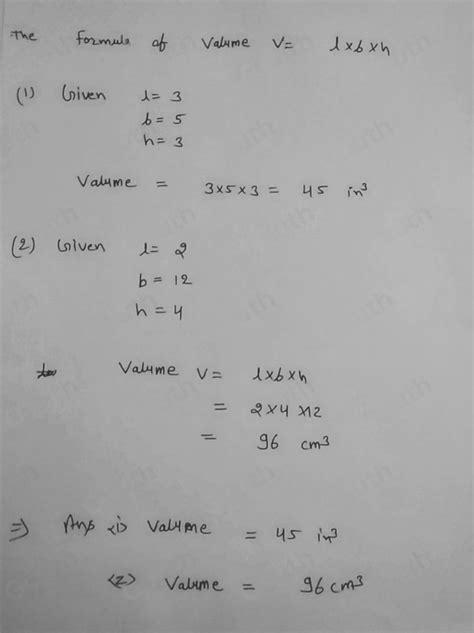 The Formula of Valume V= l×b×h
(1) Given l= 3
b= 5
h= 3
Valume = 3×5×3 = 45 in³
(2) Given l= 2
b = 12
h = 4
Valume V= l×b×h
= 2×4×12
= 96 cm³
⇒ Ans <1> Valume = 45 in³
<2> Valume = 96 cm³